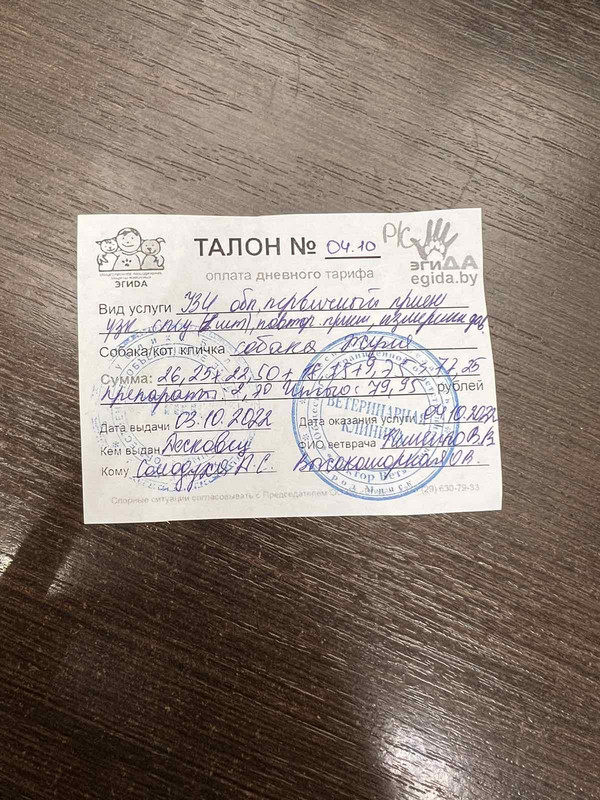 ТАЛОН № 04.10
Р/С
ЭГИДА
egida.by
ОБЩЕСТВЕННОЕ ОБЪЕДИНЕНИЕ
ЗАЩИТЫ ЖИВОТНЫХ
ЭГИДА
оплата дневного тарифа
Вид услуги УЗИ обп, первичный прием
узк. спец (2 шт), повтор. прием, измерение дав
Собака/кот, кличка собака
Сумма: 26,25 + 22,50 + 18,75 + 9,75 = 77,25
препараты: 2,70 Итого: 79,95 рублей
Дата выдачи 03.10.2022
Дата оказания услуги 04.10.2022
Кем выдан
ФИО ветврача
Кому Солодуха А.С.
ВЕТЕРИНАРНАЯ
КЛИНИКА
Спорные ситуации согласовывать с Председателем (29) 630-79-33